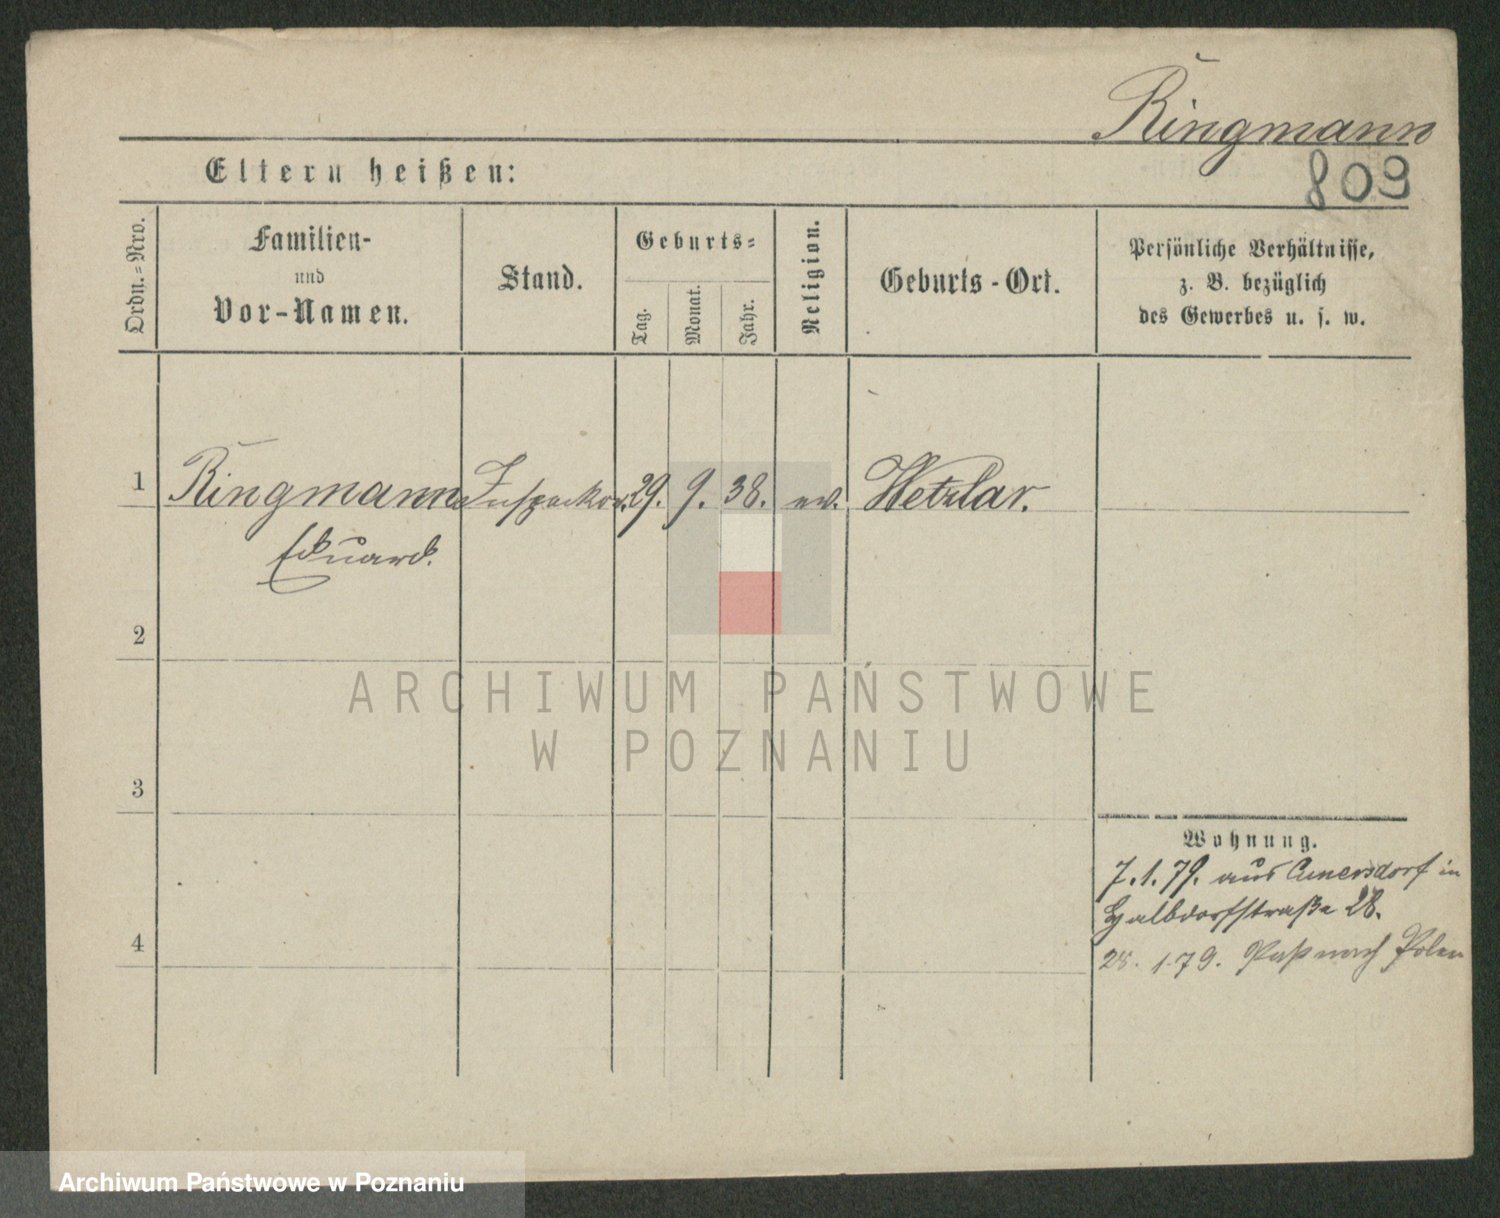 Ringmann
809
Eltern heißen:
Ordn.=Nro.
Familien-
und
Vor-Namen.
Stand.
Geburts=
Tag.
Monat.
Jahr.
Religion.
Geburts-Ort.
Persönliche Verhältnisse,
z. B. bezüglich
des Gewerbes u. s. w.
1 Ringmann Inspector. 29. 9. 38. ev. Wetzlar.
Eduard.
2
3
4
Wohnung.
7.1.79. aus in
Halbdorfstraße 28.
28. 1.79. Paß nach Polen
ARCHIWUM PAŃSTWOWE
W POZNANIU
Archiwum Państwowe w Poznaniu